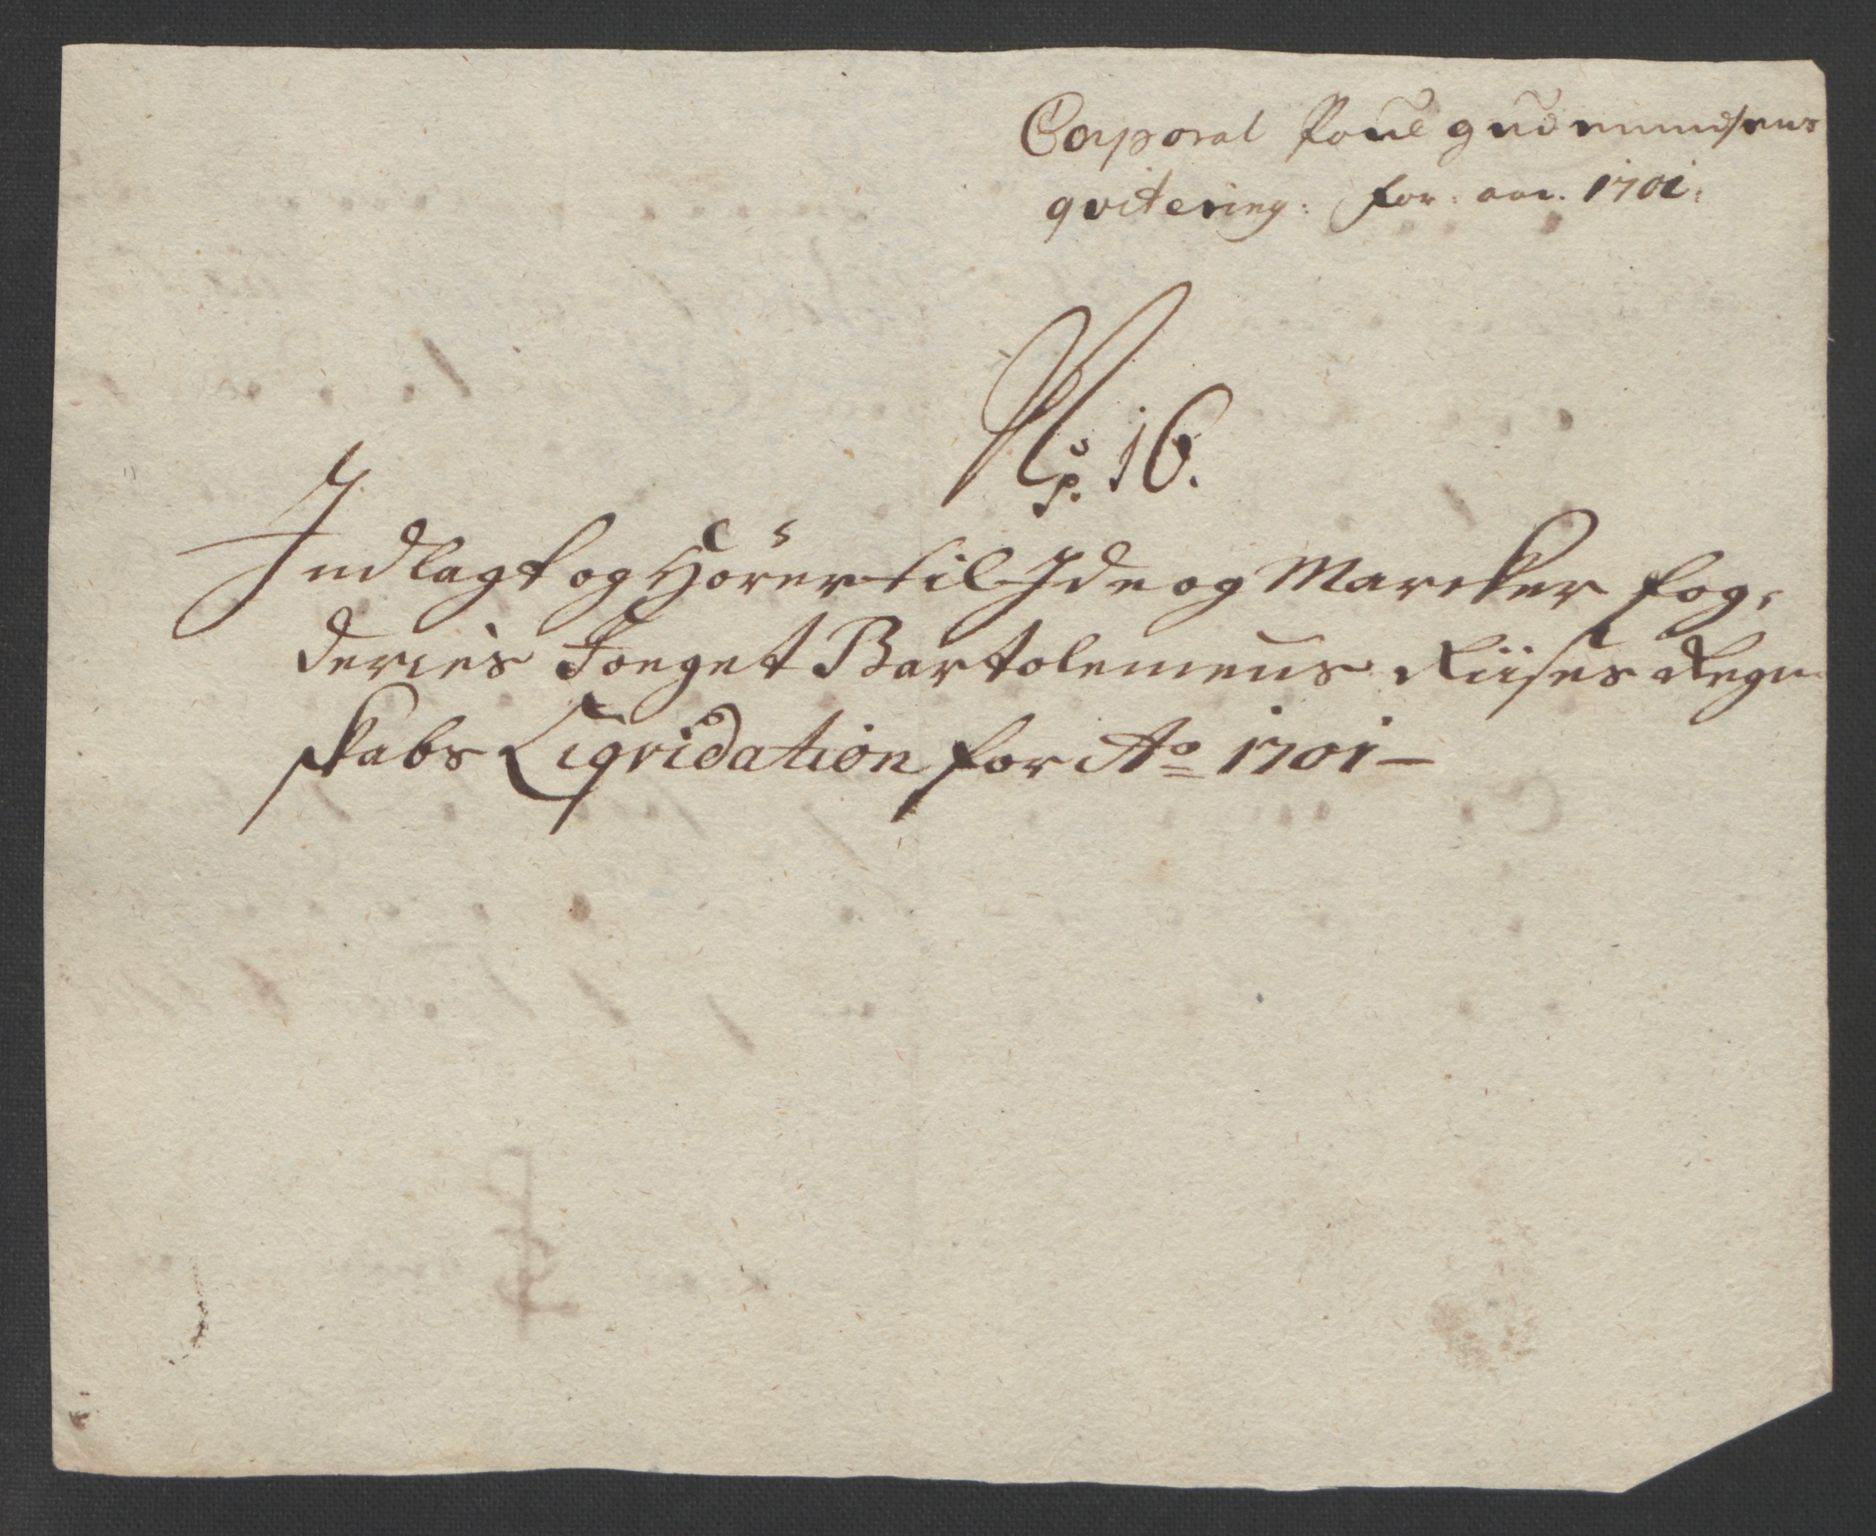 Corporal Poul gudmundsens
qvitering: for: aar. 1701:
No. 16.
Indlagt og Hörer til Ide og Marcker fog,
deries Foeget Bartolemeus Riises Regn
skabs Liqvidation for Ao 1701 —